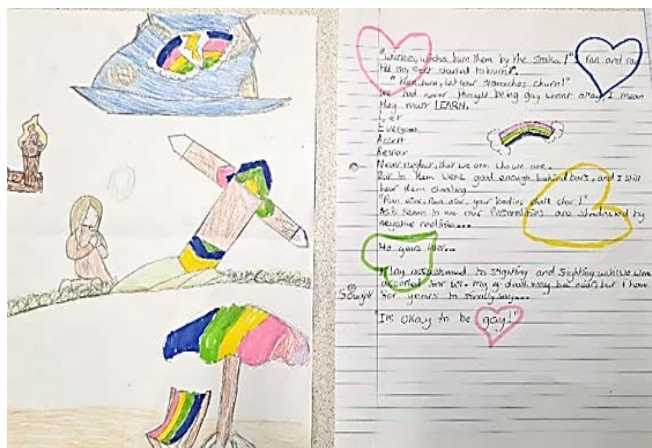 "Witches, witches burn them by the stake!" I ran and ran
till my feet started to burn.
"Burn burn, let your stomaches churn!"
We had never thought being gay wasnt okay, I mean
they must LEARN.
Let
Everyone
Accept
Respect
Never neglect, that we are who we are.
But to them were good enough behind bars, and I still
hear them chanting
"Run now, run now, your bodies shall char!"
As it seems to me our are shadowed by
negative
40 years later...
I lay to fighting and fighting until we were
accepted for us. my death may be near but I have
fought for years to finally say...
"Im okay to be gay!"